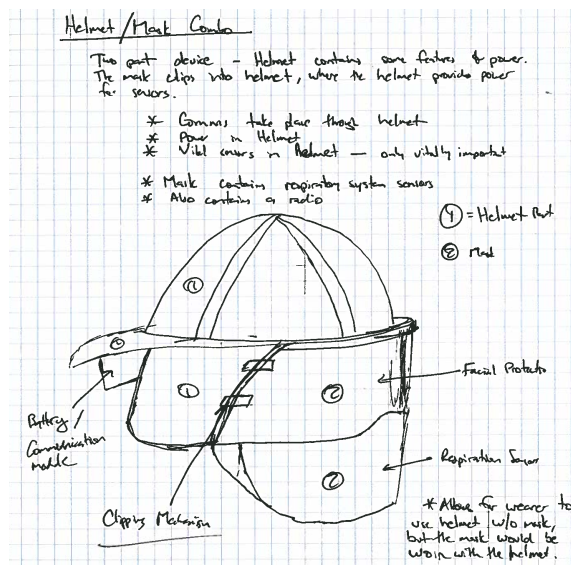 Helmet/Mask Combo
Two part device - Helmet contains some features & power.
The mask clips into helmet, where the helmet provides power
for sensors.
* Comms take place through helmet
* Power in Helmet
* Vital sensors in Helmet - only vitally important
* Mask contains respiratory system sensors
* Also contains a radio
① = Helmet Part
② Mask
①
①
①
②
②
Facial Protector
Battery/
Communication
module
Respiration Sensor
Clipping Mechanism
* Allows for wearer to
use helmet w/o mask,
but the mask would be
worn with the helmet.